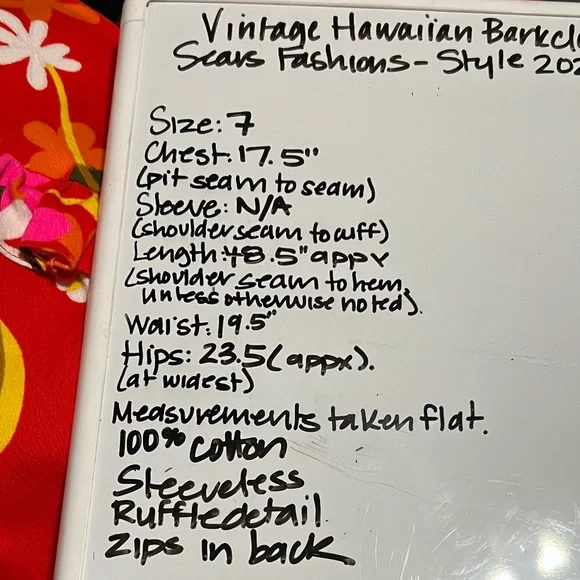 Vintage Hawaiian Barkclo
Sears Fashions - Style 202
Size: 7
Chest: 17.5"
(pit seam to seam)
Sleeve: N/A
(shoulder seam to cuff)
Length: 48.5" appx
(shoulder seam to hem,
unless otherwise noted).
Waist: 19.5"
Hips: 23.5 (appx).
(at widest)
Measurements taken flat.
100% cotton
Sleeveless
Ruffle detail
Zips in back